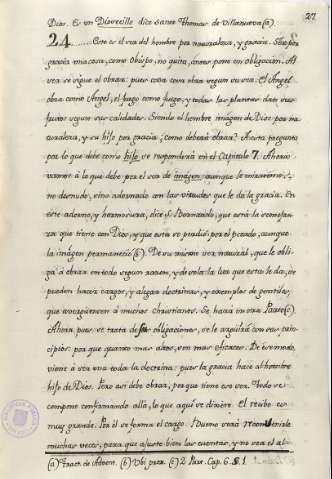 27
Dios. Es un Diosecillo dice santo Thomas de Villanueva (a).
24 ..... Este es el ser del hombre por naturaleza, y gracia. Ser por
gracia mas cosa, como Obispo, no quita, antes pone en obligacion. Al
ser se sigue el obrar: pues cada cosa obra segun su ser. El Angel
obra como Angel, el fuego como fuego, y todas las plantas dan sus
frutos segun sus calidades. Siendo el hombre imágen de Dios por na
turaleza, y su hijo por gracia; como deberá obrar? A esta pregunta
por lo que debe como hijo, se responderá en el Capitulo 7. Ahora
vamos á lo que debe por el ser de imágen, aunque la miraremos
no desnuda, sino adornada con las virtudes que le da la gracia. En
este adorno, y hermosura, dice S. Bernardo, que está la semejan
za que tiene con Dios, y que esta se perdió por el pecado, aunque
la imágen permaneció (b). De su mismo ser natural, que le obli
ga á obrar en todo segun razon, y de sola la luz que esta le da, se
pueden hacer cargos, y alegar doctrinas, y exemplos de gentiles,
que avergüencen á muchos Christianos. Se hará en otra Parte (c).
Ahora pues se trata de sus obligaciones, se le arguirá con sus prin
cipios: por que quanto mas altos, son mas eficaces. De ese modo
viene á ser una toda la doctrina: pues la gracia hace al hombre
hijo de Dios. Por eso debe obrar, por que tiene ese ser. Todo se
compone conformando allá, lo que aqui se dixere. El recibo es
muy grande. Por él se forma el cargo. Bueno será
muchas veces, para que ajuste bien las cuentas, y no sea el al-
(a) Tract. de Advent. (b) Ubi supra. (c) 2 Part. Cap. 6. §. 1.